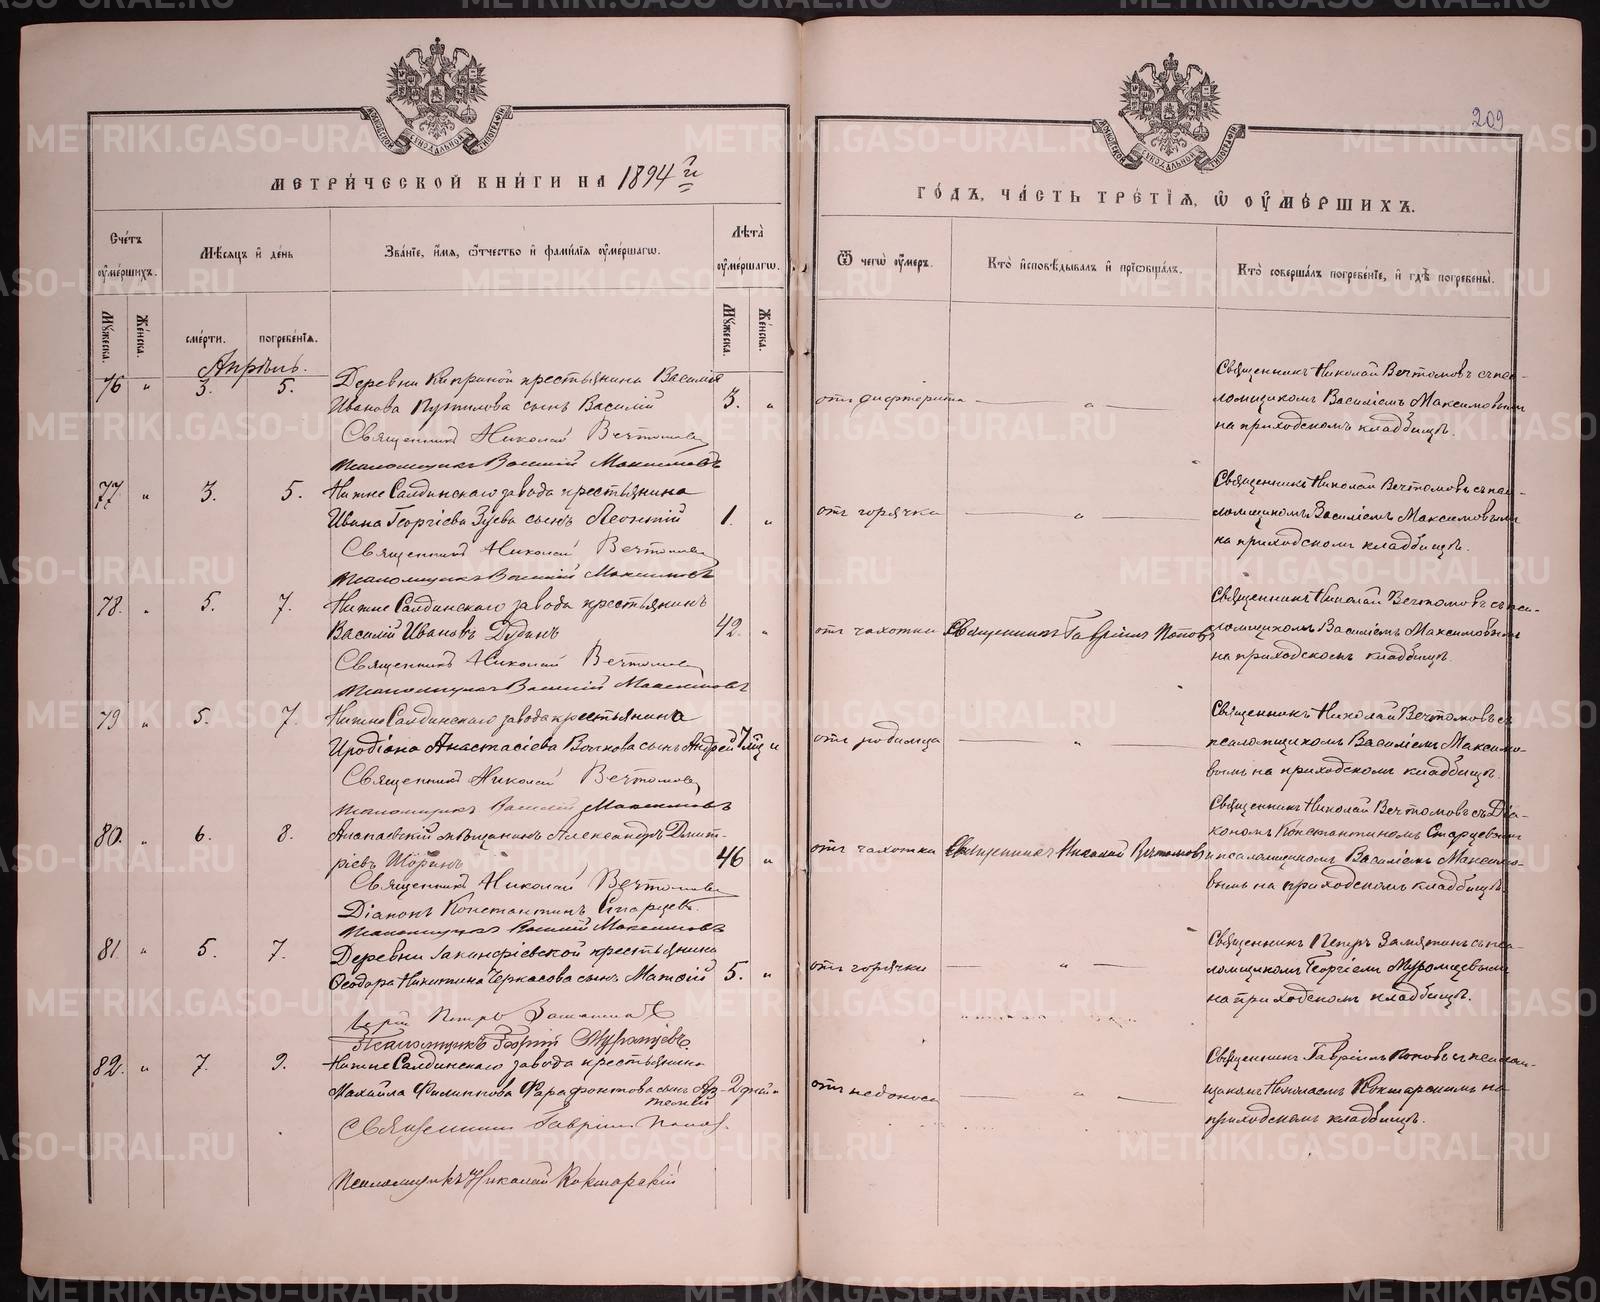 209
МЕТРИЧЕСКОЙ КНИГИ НА 1894 й
ГОДЪ, ЧАСТЬ ТРЕТІЯ, Ѿ ОУМЕРШИХЪ.
Счетъ оумершихъ.
Мѣсяцъ и день
Званіе, имя, отчество и фамилія оумершагѡ.
Лѣта оумершагѡ.
Ѿ чегѡ оумеръ.
Кто исповѣдывалъ и пріѡбщалъ.
Кто совершалъ погребеніе, и гдѣ погребены.
Мужеска.
Женска.
смерти.
погребенія.
Мужеска.
Женска.
Апрѣль.
76 " 3. 5. Деревни Киприной крестьянина Василія
Иванова Путилова сынъ Василій 3. "
отъ дифтерита — " —
Священникъ Николай Вечтомовъ съ пса-
ломщикомъ Василіемъ Максимовымъ
на приходскомъ кладбищѣ.
Священникъ Николай Вечтомовъ
Псаломщикъ Василій Максимовъ
77. " 3. 5. Нижне Салдинскаго завода крестьянина
Ивана Георгіева Зуева сынъ Леонтій 1. "
отъ горячки — " —
Священникъ Николай Вечтомовъ съ пса-
ломщикомъ Василіемъ Максимовымъ
на приходскомъ кладбищѣ.
Священникъ Николай Вечтомовъ
Псаломщикъ Василій Максимовъ
78. " 5. 7. Нижне Салдинскаго завода крестьянинъ
Василій Ивановъ 42. "
отъ чахотки Священникъ Гавріилъ Поповъ
Священникъ Николай Вечтомовъ съ пса-
ломщикомъ Василіемъ Максимовымъ
на приходскомъ кладбищѣ.
Священникъ Николай Вечтомовъ
Псаломщикъ Василій Максимовъ
79 " 5. 7. Нижне Салдинскаго завода крестьянина
Иродіона Анастасіева Волкова сынъ Андрей 7 мц "
отъ родимца — " —
Священникъ Николай Вечтомовъ съ
псаломщикомъ Василіемъ Максимо-
вымъ на приходскомъ кладбищѣ.
Священникъ Николай Вечтомовъ
Псаломщикъ Василій Максимовъ
80. " 6. 8. Алапаевскій мѣщанинъ Александръ Дмит-
ріевъ Шоринъ 46 "
отъ чахотки Священникъ Николай Вечтомовъ
Священникъ Николай Вечтомовъ съ Діа-
кономъ Константиномъ Старцевымъ
и псаломщикомъ Василіемъ Максимо-
вымъ на приходскомъ кладбищѣ.
Священникъ Николай Вечтомовъ
Діаконъ Константинъ Старцевъ.
Псаломщикъ Василій Максимовъ
81. " 5. 7. Деревни крестьянина
Ѳеодора Никитина Черкасова сынъ Матвій 5. "
отъ горячки — " —
Священникъ Петръ Замятинъ съ пса-
ломщикомъ Георгіемъ Муромцевымъ
на приходскомъ кладбищѣ.
Іерей Петръ Замятинъ
Псаломщикъ Георгій Муромцевъ.
82. " 7. 9. Нижне Салдинскаго завода крестьянина
Михаила Филиппова Фарафонтова сынъ Ар- 2 дней "
темій
отъ недоноса — " —
Священникъ Гавріилъ Поповъ съ псалом-
щикомъ Николаемъ Кокшарскимъ на
приходскомъ кладбищѣ.
Священникъ Гавріилъ Поповъ.
Псаломщикъ Николай Кокшарскій